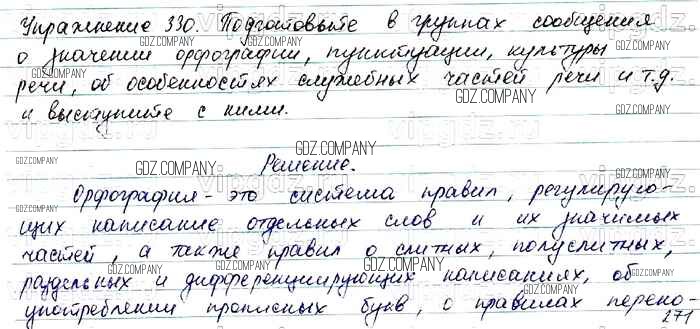 Упражнение 330. Подготовьте в группах сообщения
о значении орфографии, пунктуации, культуры
речи, об особенностях служебных частей речи и т.д.
и выступите с ними.
Решение.
Орфография - это система правил, регулирую-
щих написание отдельных слов и их значимых
частей, а также правил о слитных, полуслитных,
раздельных и дифференцирующих написаниях, об
употреблении прописных букв, о правилах перено-
271
GDZ.COMPANY
vipgdz.ru